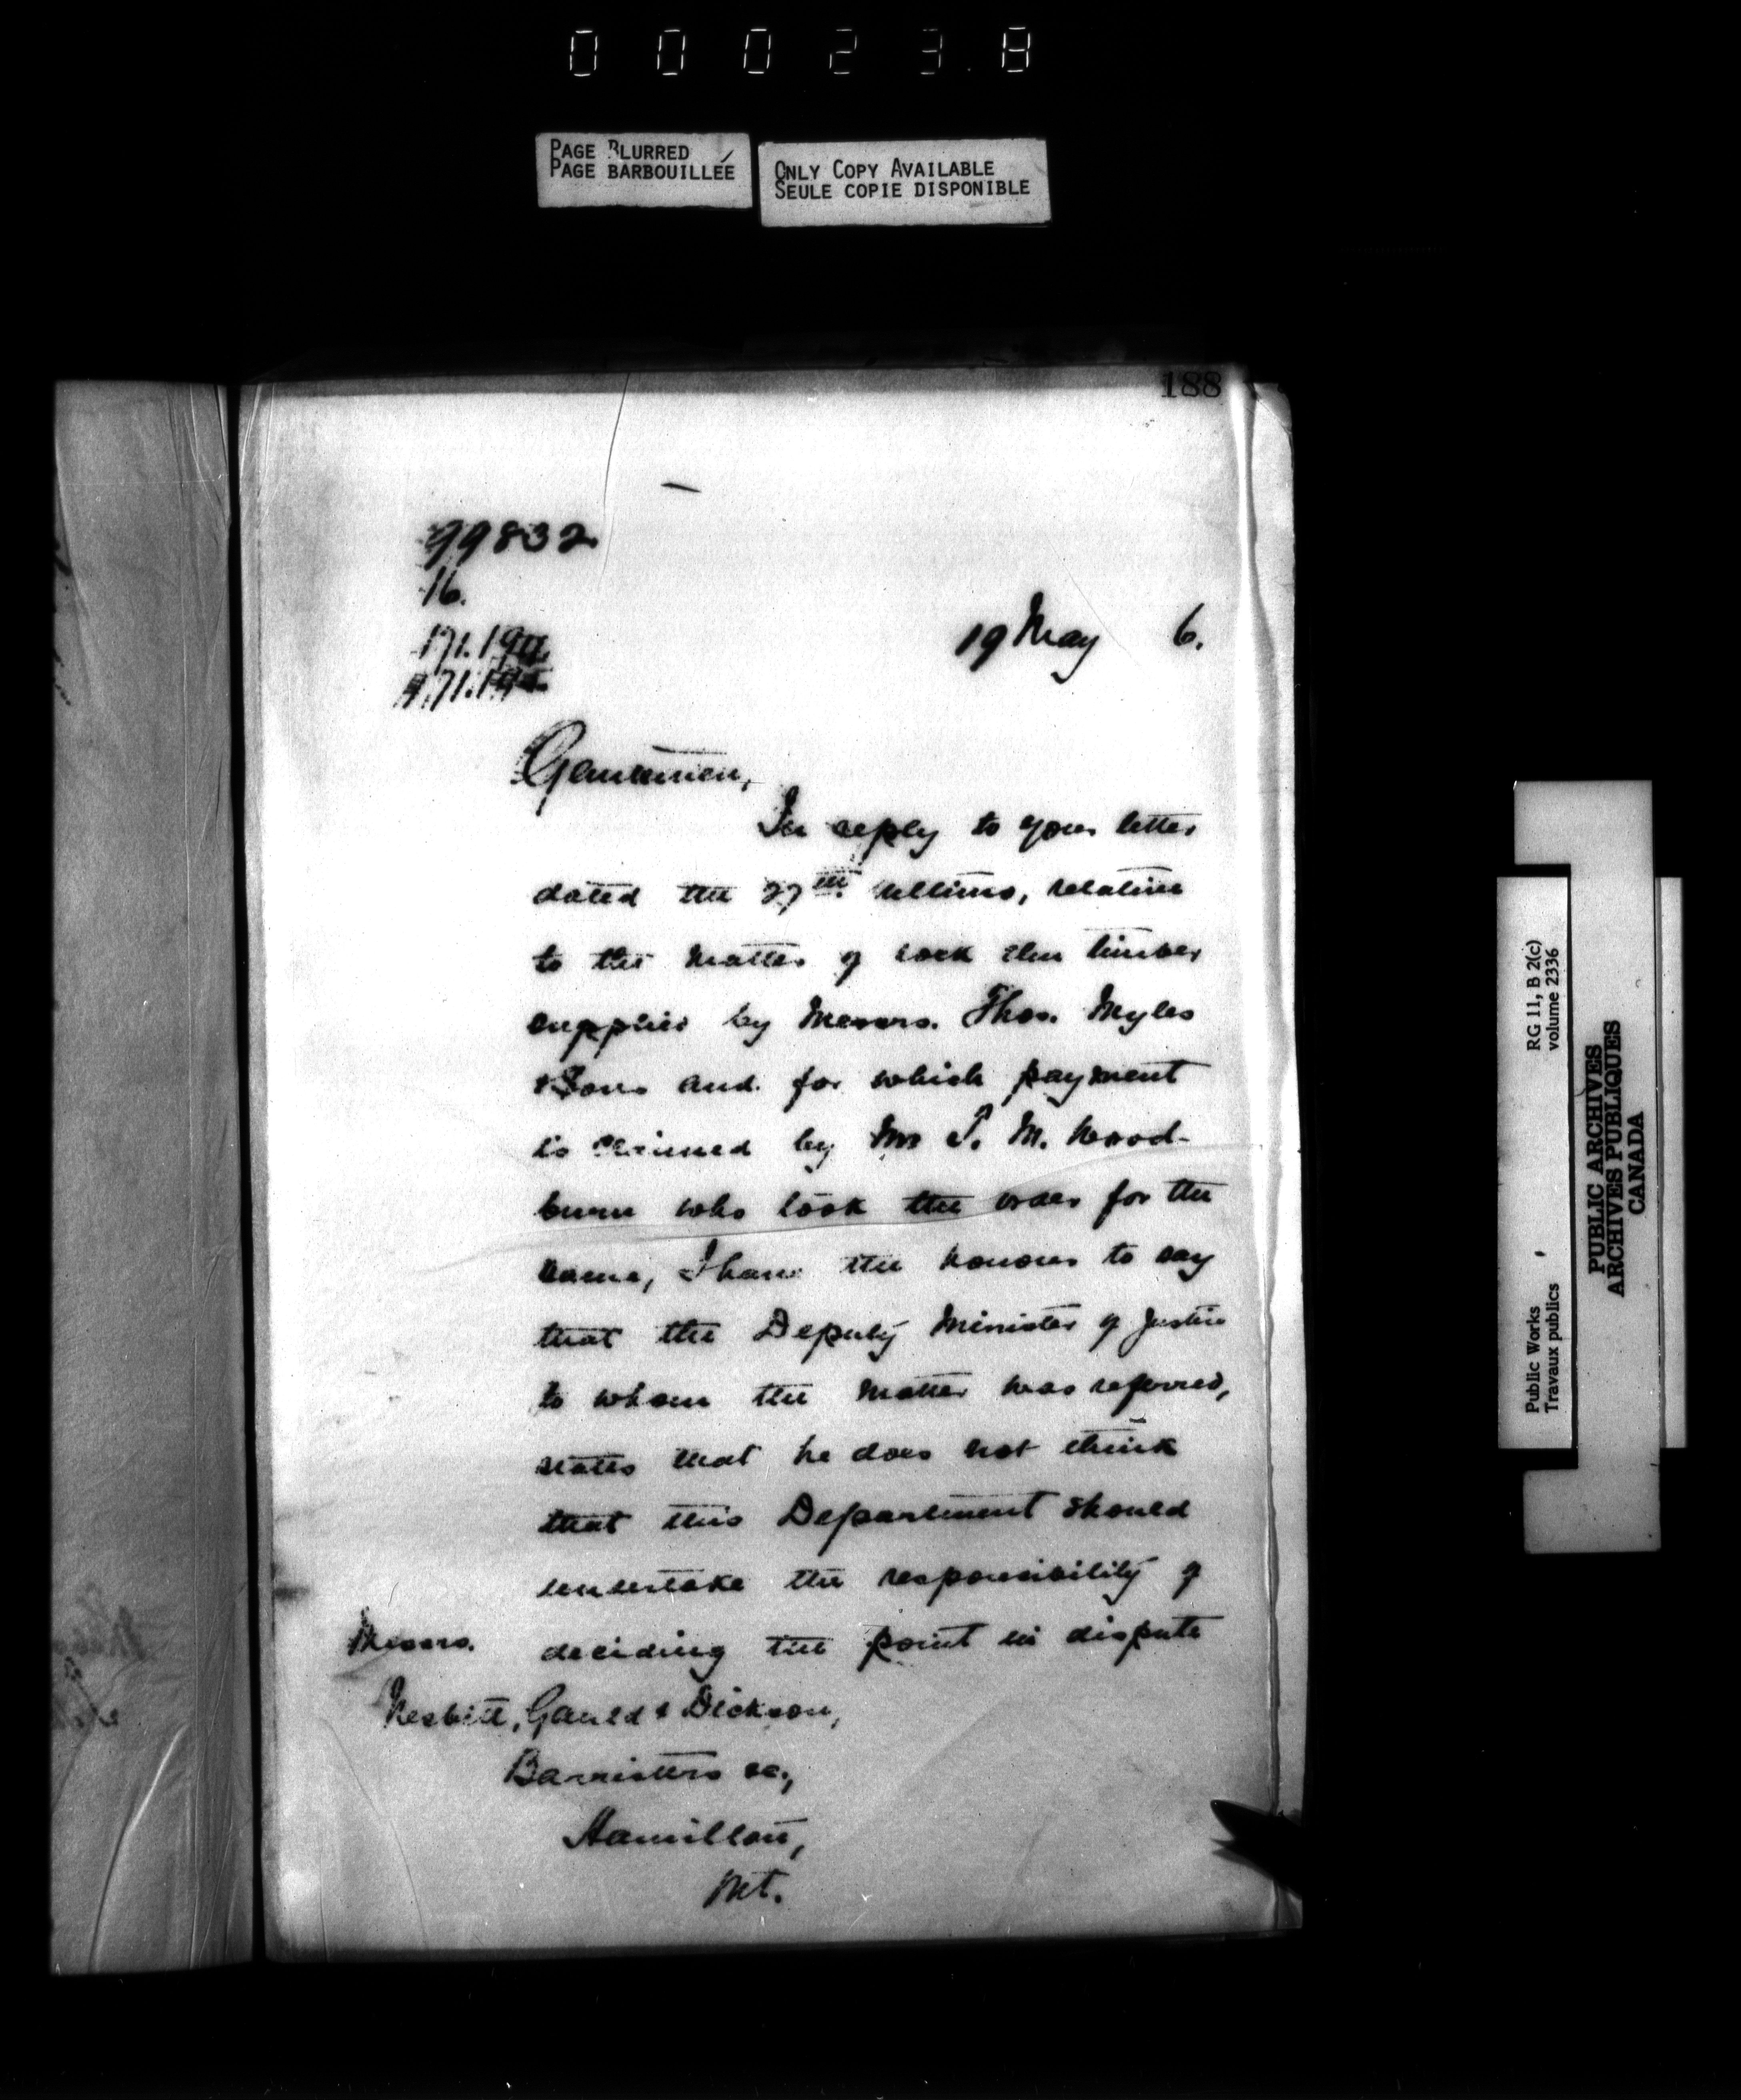 000238
PAGE BLURRED
PAGE BARBOUILLÉE
ONLY COPY AVAILABLE
SEULE COPIE DISPONIBLE
188
99832
16.
171.194
19 May 6.
Gentlemen,
In reply to your letter
dated the 27th ultimo, relative
to the matter of rock elm timber
supplied by Messrs. Thos. Myles
& Sons and for which payment
is claimed by Mr M. Wood-
burn who took the order for the
same, I have the honour to say
that the Deputy Minister of Justice
to whom the matter was referred,
states that he does not think
that this Department should
undertake the responsibility of
deciding the point in dispute
Messrs.
Nesbitt, Gauld & Dickson,
Barristers &c.,
Hamilton,
Ont.
Public Works
Travaux publics
RG 11, B 2(c)
volume 2336
PUBLIC ARCHIVES
ARCHIVES PUBLIQUES
CANADA